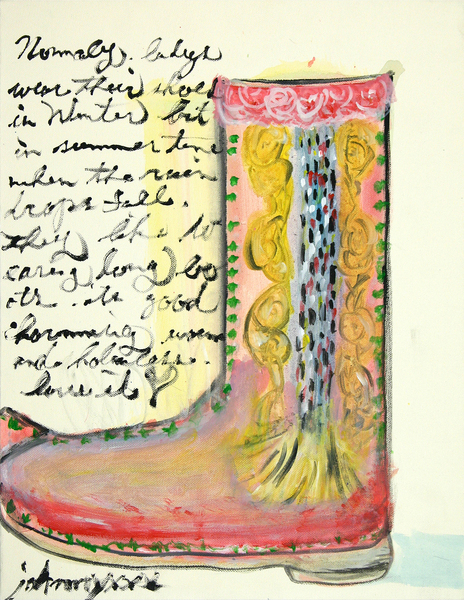 Normaly. ladys
wear their shoes
in Winter but
in summer time
when the rain
drops fall.
they like to
caring long bo
ots. its good
charmming warm
and
love it